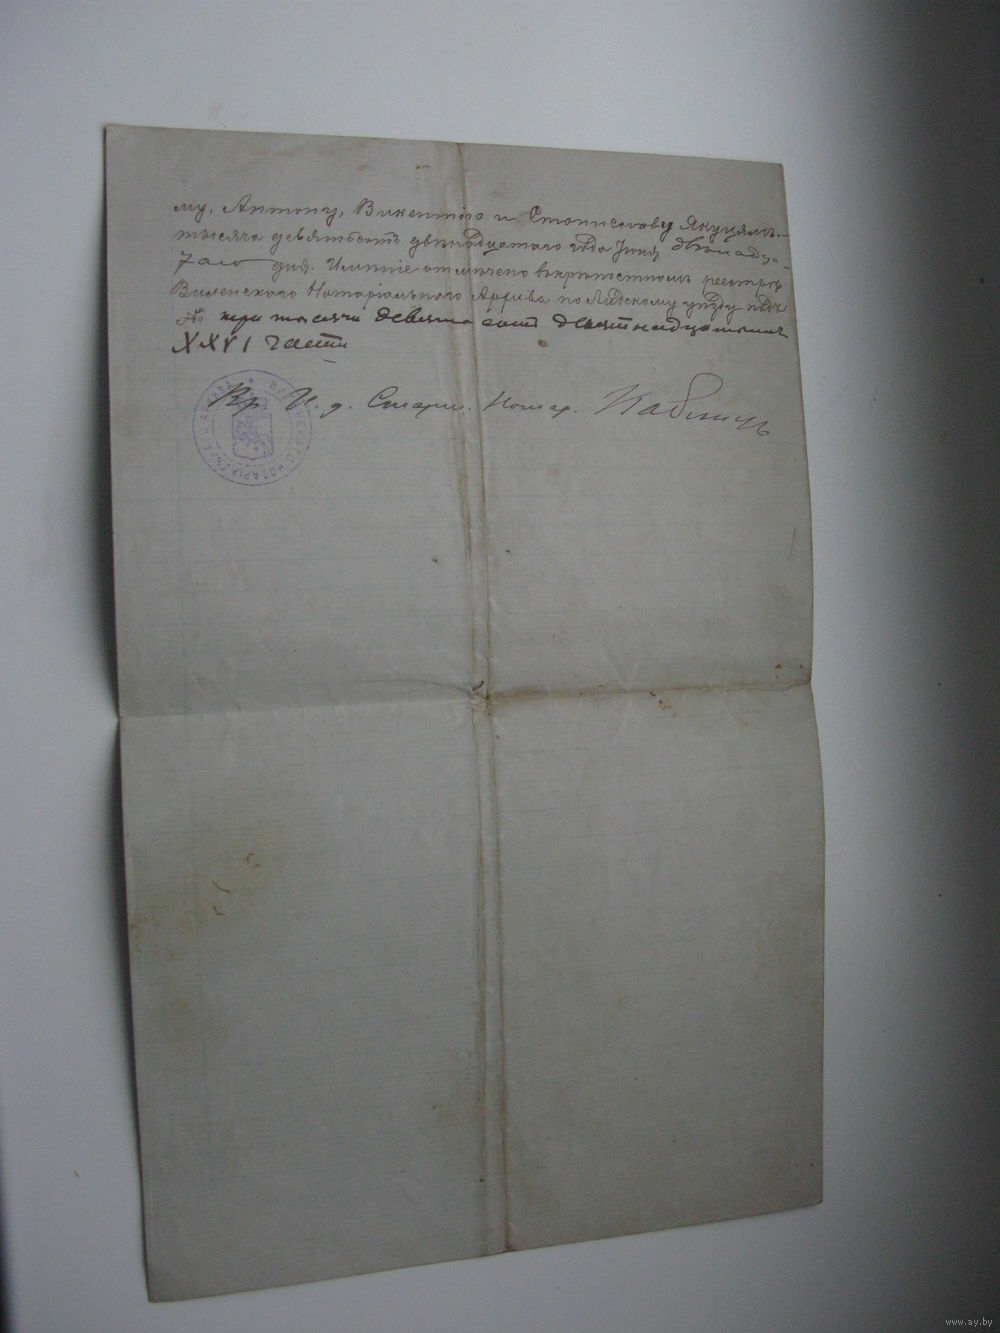 му, Антону, Викентію и Станиславу Якуцямъ.
тысяча девятьсотъ двѣнадцатаго года Іюня двѣнадца-
таго дня. Имѣніе отмѣчено въ крѣпостномъ реестрѣ
Виленскаго Нотаріальнаго Архива по Лидскому уѣзду подъ
№ три тысячи девятьсот девятнадцатым
XXVI части
Вр. И. д. Старш. Нотар.
ВИЛЕНСКАГО НОТАРІАЛЬНАГО АРХИВА
www.ay.by